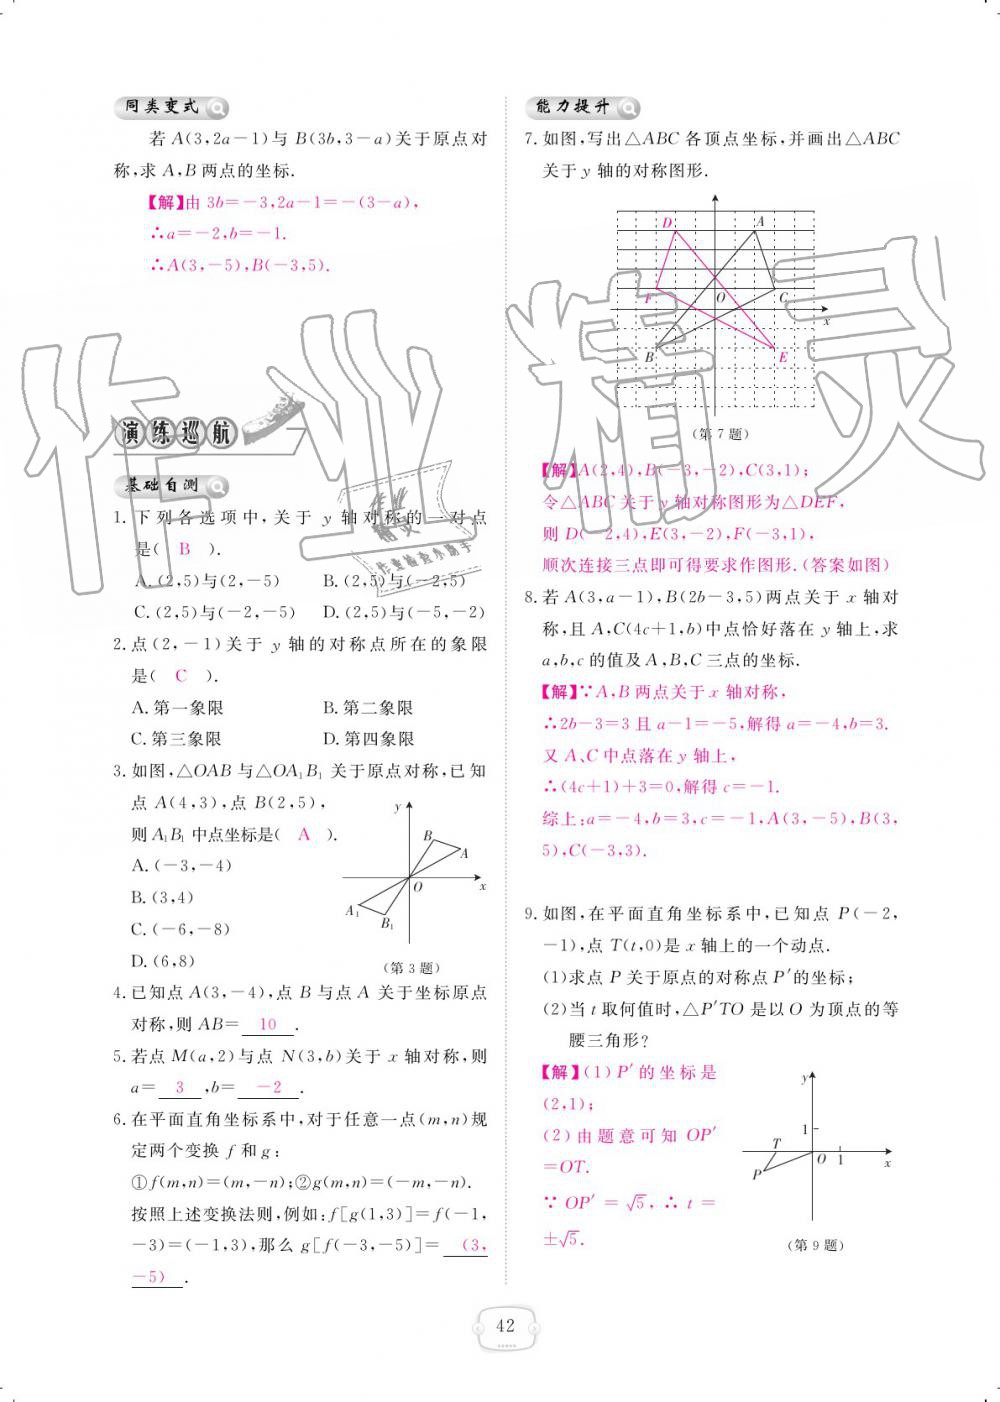 同类变式
若 A(3,2a-1)与 B(3b,3-a)关于原点对
称,求 A,B 两点的坐标.
【解】由 3b=-3,2a-1=-(3-a),
∴a=-2,b=-1.
∴A(3,-5),B(-3,5).
演练巡航
基础自测
1. 下列各选项中,关于 y 轴对称的一对点
是( B ).
A. (2,5)与(2,-5) B. (2,5)与(-2,5)
C. (2,5)与(-2,-5) D. (2,5)与(-5,-2)
2. 点(2,-1)关于 y 轴的对称点所在的象限
是( C ).
A. 第一象限 B. 第二象限
C. 第三象限 D. 第四象限
3. 如图,△OAB 与△OA₁B₁ 关于原点对称,已知
点 A(4,3),点 B(2,5),
则 A₁B₁ 中点坐标是( A ).
A. (-3,-4)
B. (3,4)
C. (-6,-8)
D. (6,8)
y
B
A
O
x
A₁
B₁
(第 3 题)
4. 已知点 A(3,-4),点 B 与点 A 关于坐标原点
对称,则 AB= 10 .
5. 若点 M(a,2)与点 N(3,b)关于 x 轴对称,则
a= 3 ,b= -2 .
6. 在平面直角坐标系中,对于任意一点(m,n)规
定两个变换 f 和 g:
①f(m,n)=(m,-n);②g(m,n)=(-m,-n).
按照上述变换法则,例如:f[g(1,3)]=f(-1,
-3)=(-1,3),那么 g[f(-3,-5)]= (3,
-5) .
能力提升
7. 如图,写出△ABC 各顶点坐标,并画出△ABC
关于 y 轴的对称图形.
D
A
F
O
C
x
B
E
(第 7 题)
【解】A(2,4),B(-3,-2),C(3,1);
令△ABC 关于 y 轴对称图形为△DEF,
则 D(-2,4),E(3,-2),F(-3,1),
顺次连接三点即可得要求作图形.(答案如图)
8. 若 A(3,a-1),B(2b-3,5)两点关于 x 轴对
称,且 A,C(4c+1,b)中点恰好落在 y 轴上,求
a,b,c 的值及 A,B,C 三点的坐标.
【解】∵A,B 两点关于 x 轴对称,
∴2b-3=3 且 a-1=-5,解得 a=-4,b=3.
又 A、C 中点落在 y 轴上,
∴(4c+1)+3=0,解得 c=-1.
综上:a=-4,b=3,c=-1,A(3,-5),B(3,
5),C(-3,3).
9. 如图,在平面直角坐标系中,已知点 P(-2,
-1),点 T(t,0)是 x 轴上的一个动点.
(1)求点 P 关于原点的对称点 P′的坐标;
(2)当 t 取何值时,△P′TO 是以 O 为顶点的等
腰三角形?
【解】(1) P′ 的坐标是
(2,1);
(2) 由题意可知 OP′
=OT.
∵ OP′ = √5, ∴ t =
±√5.
y
1
T
O
1
x
P
(第 9 题)
42
作业精灵
作业
精灵
作业检查小助手